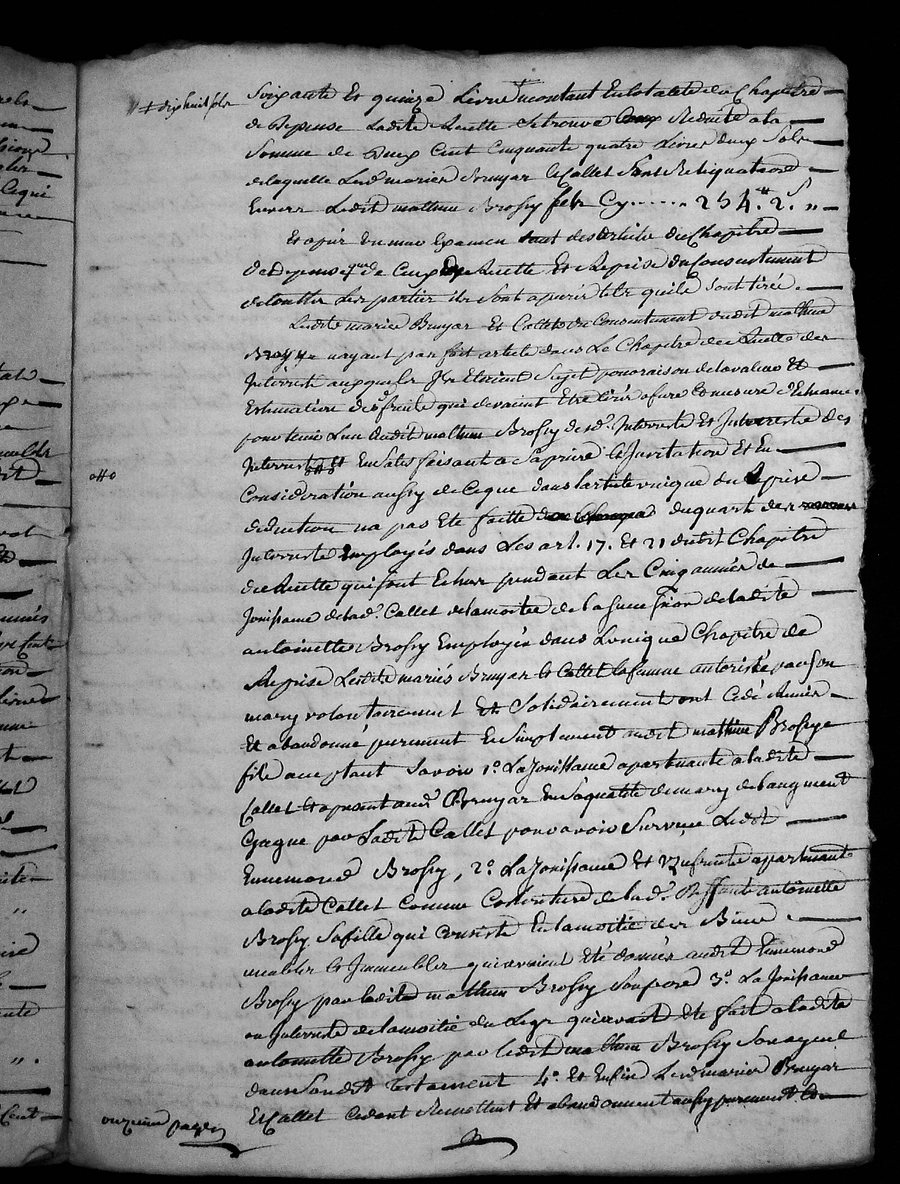 + dixhuit sols
Soixante Et quinze Livre montant En totalité du Chapitre
de Depense Ladite Recette Se trouve Reduite a la
Somme de Deux Cent Cinquante quatre Livres deux Sols
de laquelle Lesd. mariés Bruyar et Callet Sont Reliquataires
Envers Ledit mathieu Brossy fils Cy ....... 254.# 2.s "
Et apres un mur Examen tant des article du Chapitre
de depense que de Ceux de Recette Et Reprise du Consentement
de toutter Les partier ils Sont apurés tels quils Sont tirés.
Ledits mariés Bruyar Et Callet du Consentement dudit mathieu
Brossy n'ayant pas fait article dans Le Chapitre de Recette des
Interrets auxquels Ils Etoient Sujet pour raison de la valeur Et
Estimation des fruits qui devaint Etre tirés afure Et mesure d'Echeance
pour tenir Lieu audit mathieu Brossy desd. Interrets Et Interrets des
Interrets Et En Satisfaisant a Sa priere Et Invitation Et En
otto
Consideration aussy de Ceque dans l'article unique de Reprise
deduction na pas Eté faitte du quart des
Interrets Employés dans Les art. 17. Et 21 dudit Chapitre
de Recette qui sont Echus pendant Les Cinq années de
Jouissance de lad. Callet de la moitié de la Succession de ladite
antoinette Brossy Employée dans L'unique Chapitre de
Reprise Lesdits mariés Bruyar et Callet la femme autorisée par Son
mary volontairement Et Solidairement ont Cedé Remis
Et abandonné purement Et Simplement audit mathieu Brossy
fils acceptant Savoir 1°. La Jouissance apartenante a ladite
Callet Et a present aud. Bruyar En Sa qualité de mary de l'augment
Gagné par Ladite Callet pour avoir Survecu Ledit
Ennemond Brossy, 2°. La Jouissance Et Usufruit apartenant
a ladite Callet Comme de lad. deffunte antoinette
Brossy Sa fille qui Consiste En la moitié des Biens
meubles Et Immeubles qui avaient Eté donnés audit Ennemond
Brossy par ledit mathieu Brossy Son pere 3°. La Jouissance
ou Interrets de la moitié du Legs qui avait Eté fait a ladite
antoinette Brossy par ledit mathieu Brossy Son ayeul
dans Sondit testament 4°. Et Enfin Lesd. mariés Bruyar
Et Callet Cedent Remettent Et abandonnent aussy purement Et
onzieme page